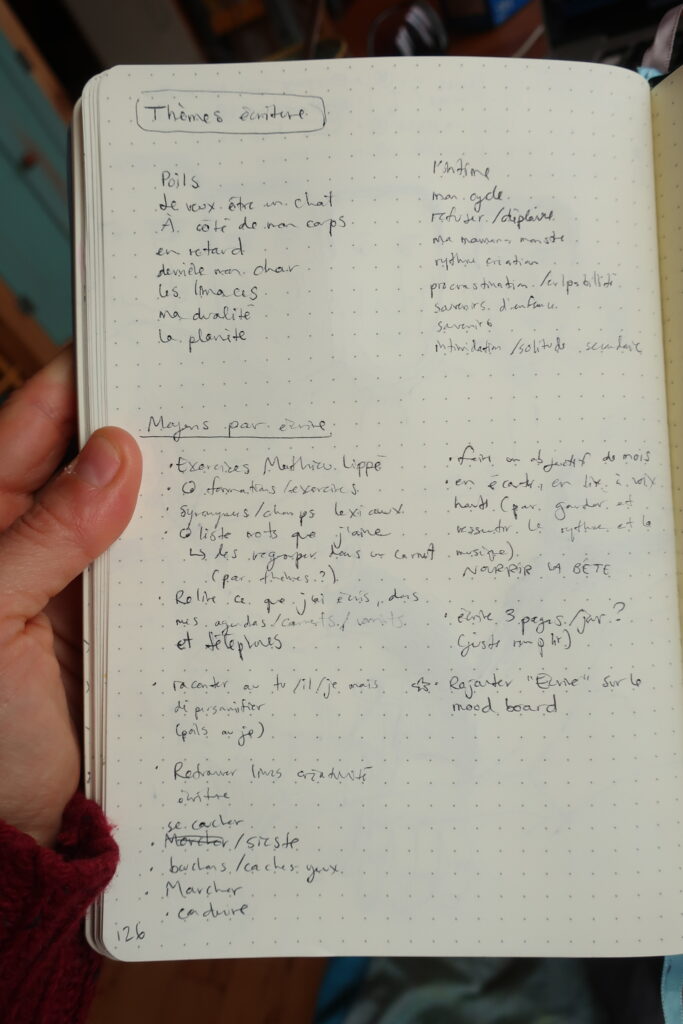 Thèmes écriture
Poils
Je veux être un chat
À côté de mon corps
en retard
derrière mon char
les limaces
ma dualité
la planète
l'intime
mon cycle
refuser/déplaire
ma maman monstre
rythme création
procrastination/culpabilité
souvenirs d'enfance
souvenirs
intimidation/solitude secondaire
Moyens par écrire
• Exercices Mathieu Lippé
• formations/exercices
• synonymes/champs lexicaux
• liste mots que j'aime
↳ les regrouper dans un carnet
(par thèmes?)
• Relire ce que j'ai écris dans
mes agendas/carnets/
et téléphones
• raconter au tu/il/je mais
dépersonnifier
(poils au je)
• Retrouver livres créativité
se cacher
• Marcher/sieste
• bouchons/caches yeux
• Marcher
• conduire
• faire un objectif de mois
• en écrit, en lire à voix
haute (par garder et
ressentir le rythme et la
musique)
NOURRIR LA BÊTE
• écrire 3 pages/jour?
(juste remplir)
☆• Rajouter "Écrire" sur le
mood board
126